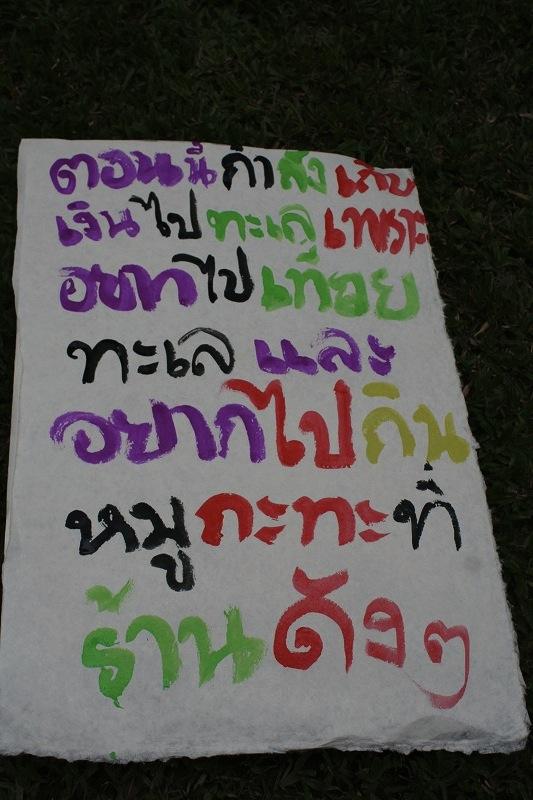 ตอนนี้กำลังเก็บ
เงินไปทะเลเพราะ
อยากไปเที่ยว
ทะเลและ
อยากไปกิน
หมูกะทะที่
ร้านดังๆ